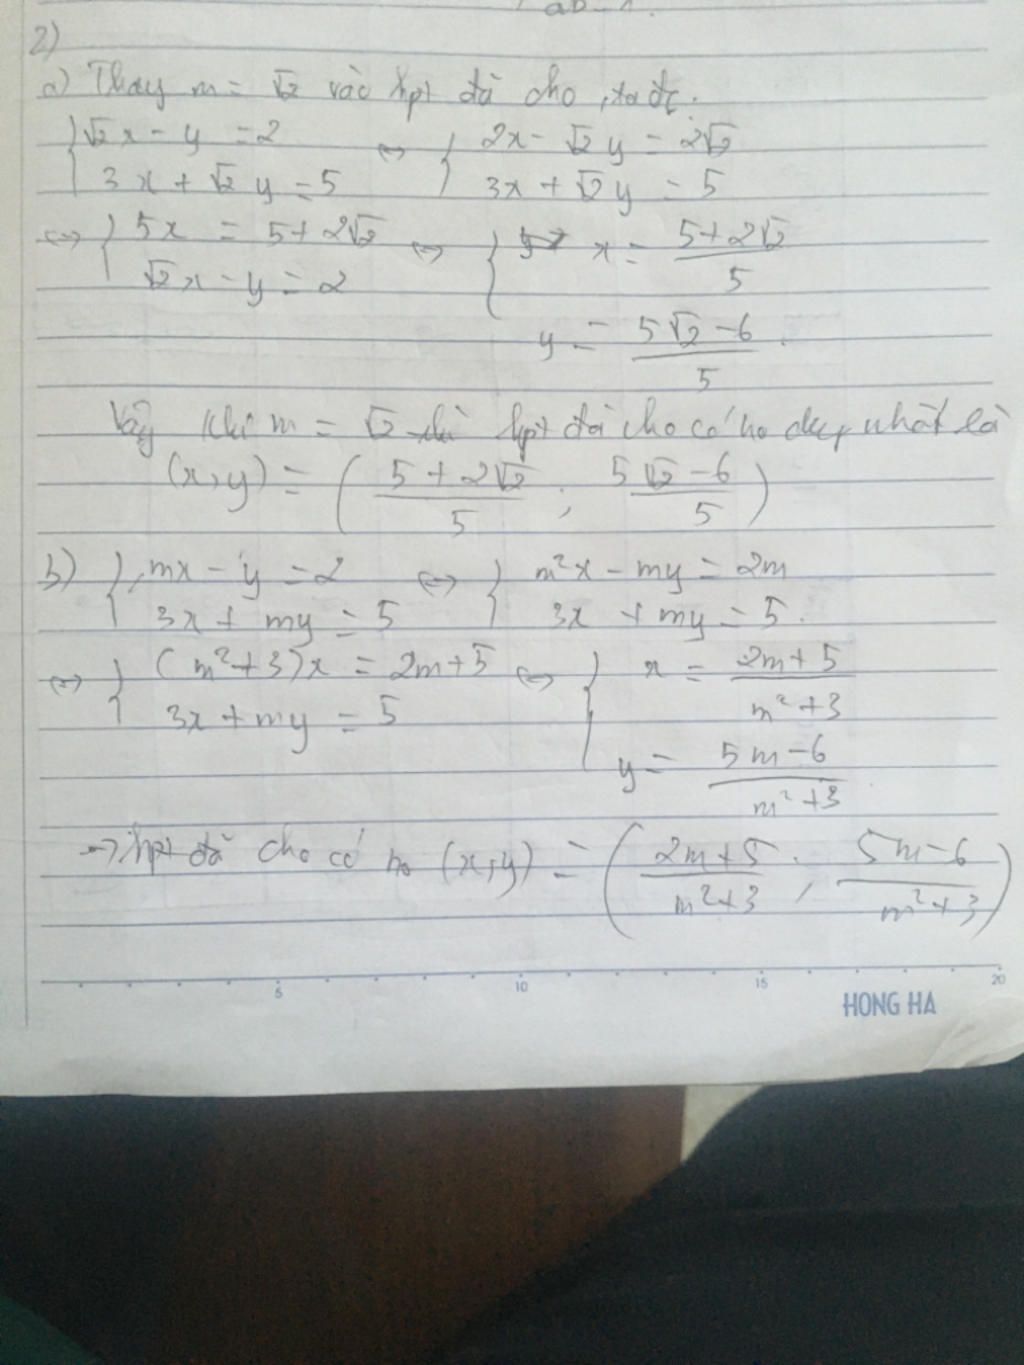 2)
a) Thay m = √2 vào hpt đã cho, ta đc.
{ √2x - y = 2 <=> { 2x - √2y = 2√2
{ 3x + √2y = 5 { 3x + √2y = 5
<=> { 5x = 5+2√2 <=> { x = (5+2√2)/5
{ √2x - y = 2 { y = (5√2-6)/5.
Vậy khi m = √2 thì hpt đã cho có no duy nhất là
(x,y) = ( (5+2√2)/5 ; (5√2-6)/5 )
b) { mx - y = 2 <=> { m²x - my = 2m
{ 3x + my = 5 { 3x + my = 5.
<=> { (m²+3)x = 2m+5 <=> { x = (2m+5)/(m²+3)
{ 3x + my = 5 { y = (5m-6)/(m²+3)
=> hpt đã cho có no (x,y) = ( (2m+5)/(m²+3) ; (5m-6)/(m²+3) )
5 10 15 20
HONG HA